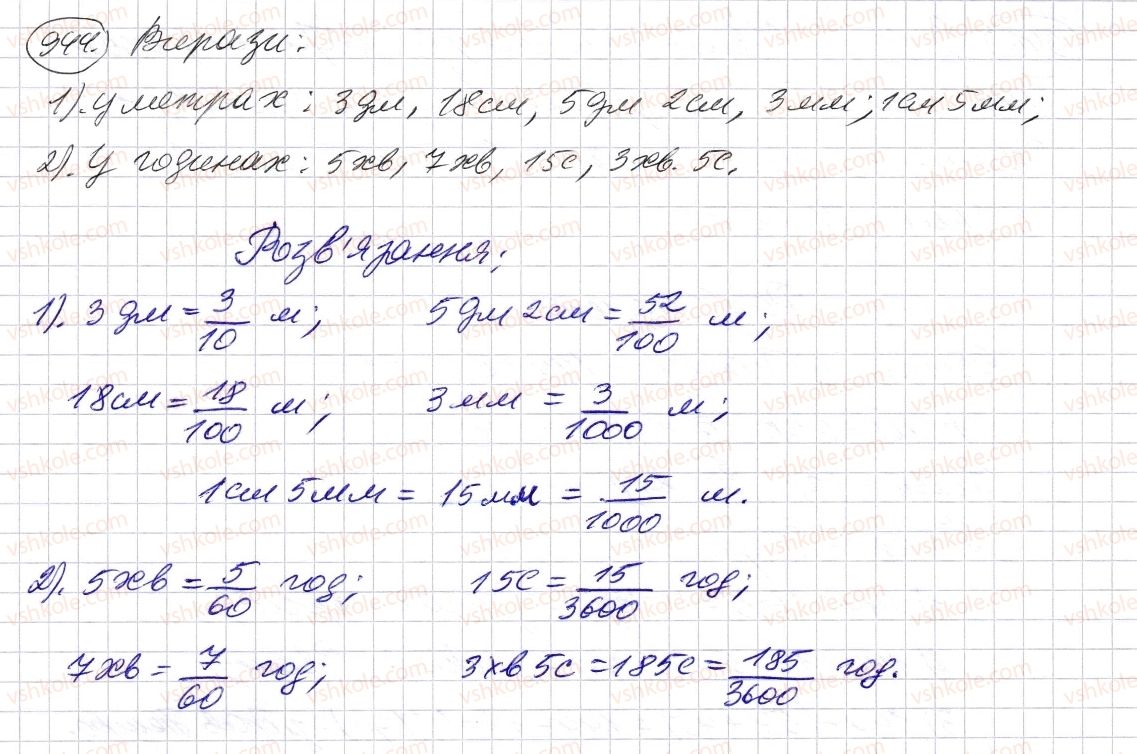 944. Вирази:
1). у метрах: 3дм, 18см, 5дм 2см, 3мм; 1см 5мм;
2). У годинах: 5хв, 7хв, 15с, 3хв. 5с.
Розв'язання:
1). 3 дм = 3/10 м; 5дм 2см = 52/100 м;
18см = 18/100 м; 3мм = 3/1000 м;
1см 5мм = 15мм = 15/1000 м.
2). 5хв = 5/60 год; 15с = 15/3600 год;
7хв = 7/60 год; 3хв 5с = 185с = 185/3600 год.
vshkole.com